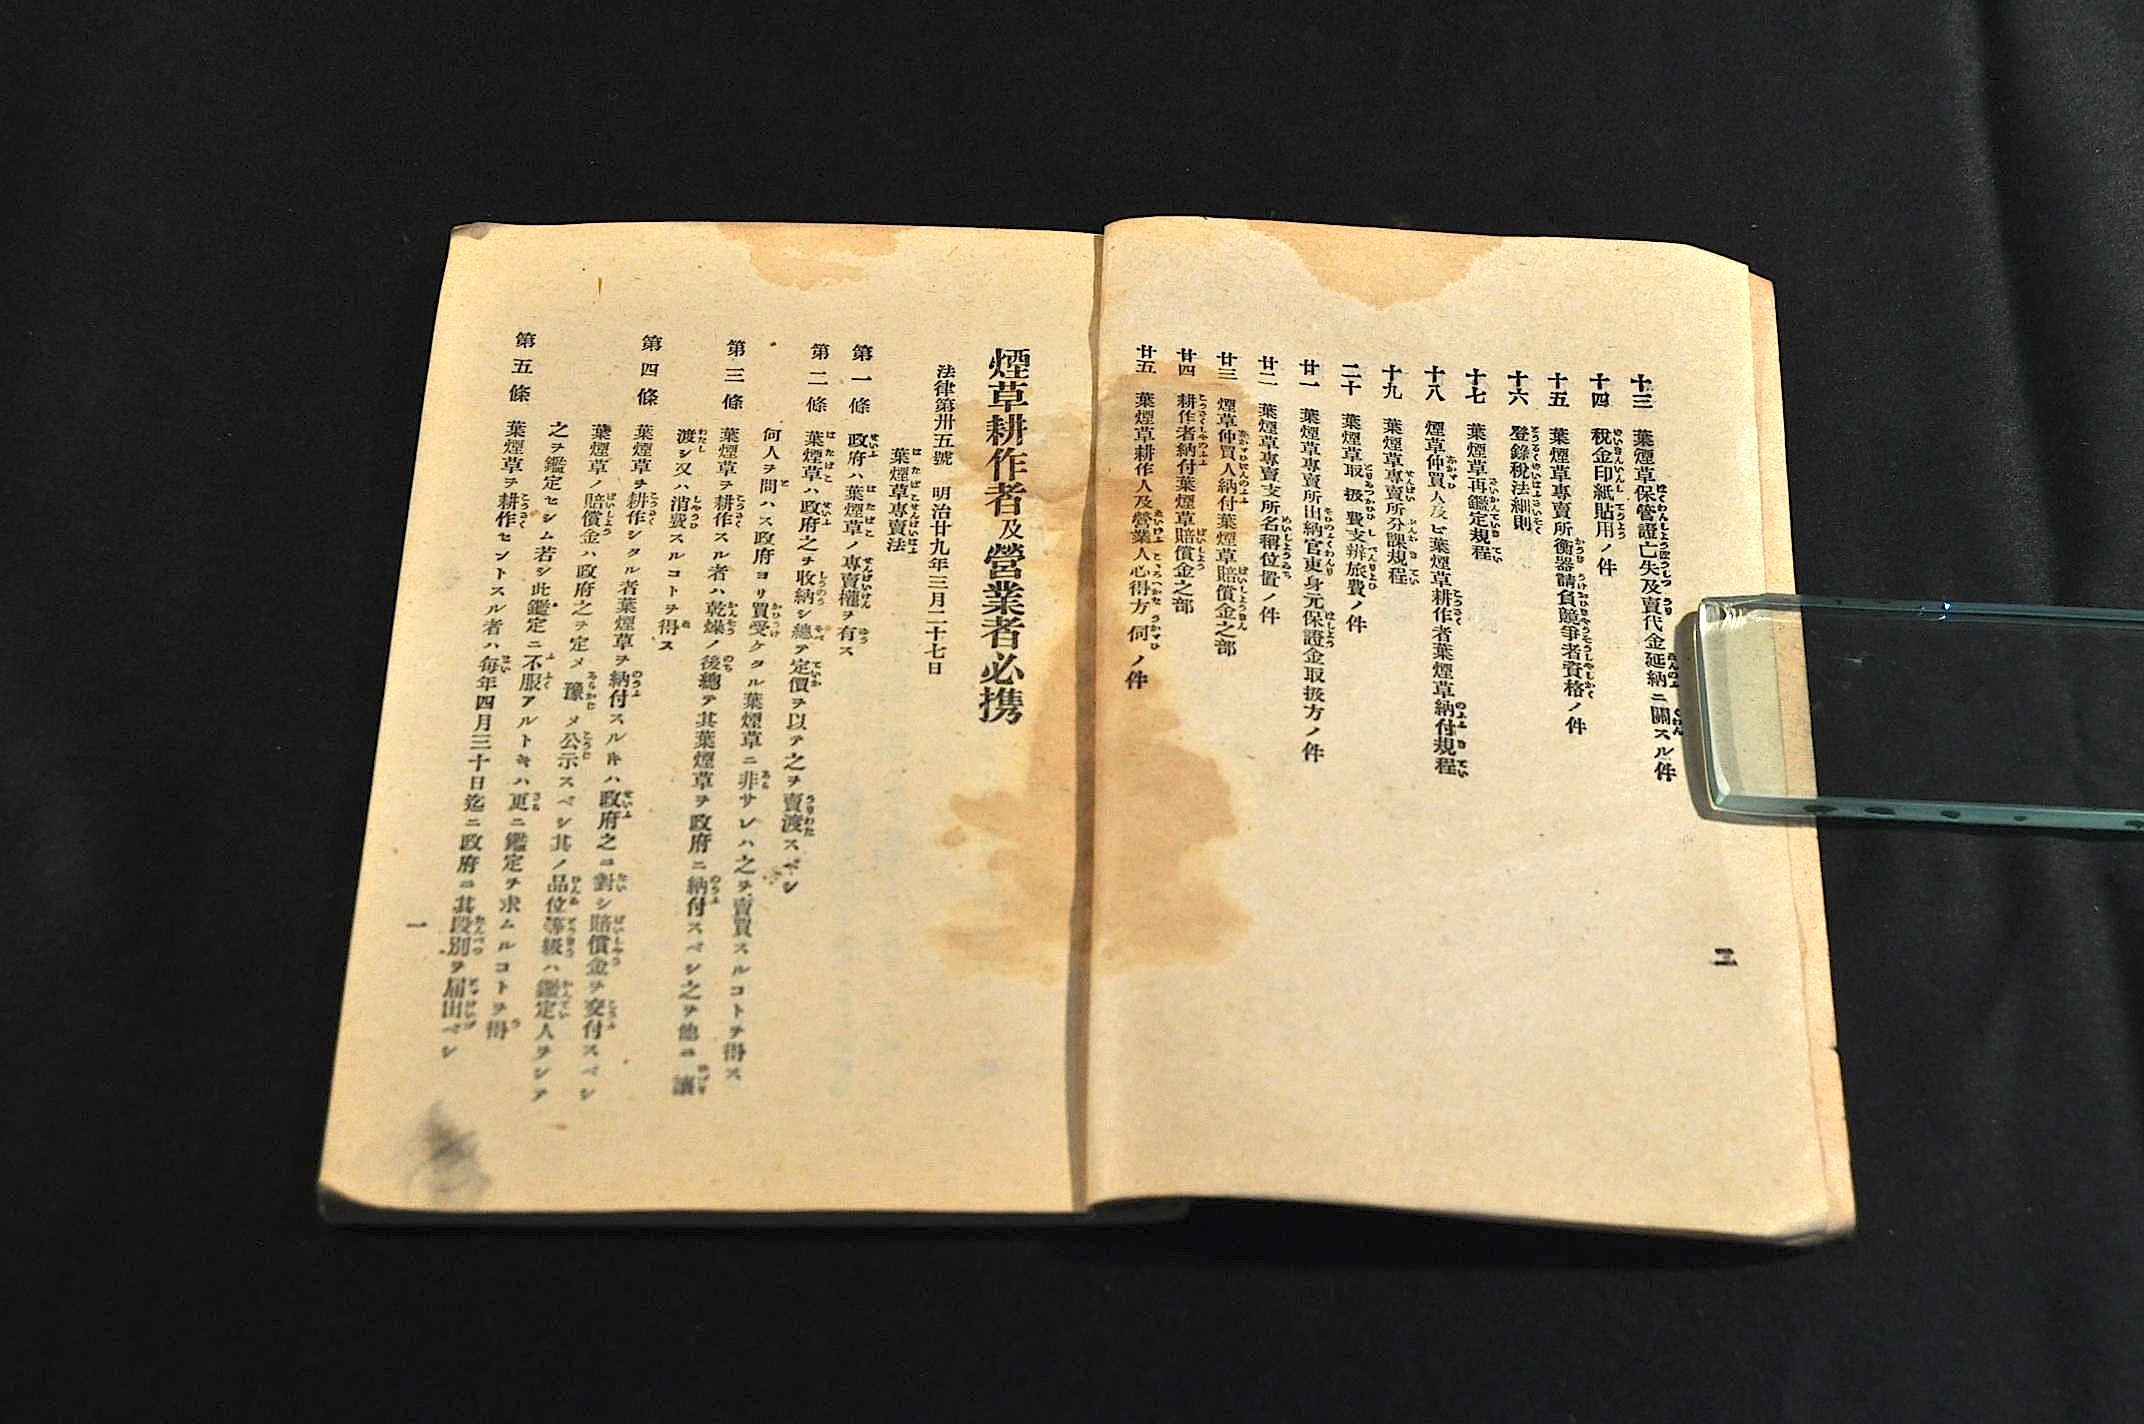 十三 葉煙草保管證亡失及賣代金延納ニ關スル件
十四 稅金印紙貼用ノ件
十五 葉煙草專賣所衡器請負競爭者資格ノ件
十六 登錄稅法細則
十七 葉煙草再鑑定規程
十八 煙草仲買人及ビ葉煙草耕作者葉煙草納付規程
十九 葉煙草專賣所分課規程
二十 葉煙草取扱費支辨旅費ノ件
廿一 葉煙草專賣所出納官吏身元保證金取扱方ノ件
廿二 葉煙草專賣支所名稱位置ノ件
廿三 煙草仲買人納付葉煙草賠償金之部
廿四 耕作者納付葉煙草賠償金之部
廿五 葉煙草耕作人及營業人心得方伺ノ件
二
煙草耕作者及營業者必携
法律第卅五號 明治廿九年三月二十七日
葉煙草專賣法
第一條 政府ハ葉煙草ノ專賣權ヲ有ス
第二條 葉煙草ハ政府之ヲ收納シ總テ定價ヲ以テ之ヲ賣渡スベシ
何人ヲ問ハス政府ヨリ買受ケタル葉煙草ニ非サレハ之ヲ賣買スルコトヲ得ス
第三條 葉煙草ヲ耕作スル者ハ乾燥ノ後總テ其葉煙草ヲ政府ニ納付スベシ之ヲ他ニ讓
渡シ又ハ消費スルコトヲ得ス
第四條 葉煙草ヲ耕作シタル者葉煙草ヲ納付スルキハ政府之ニ對シ賠償金ヲ交付スベシ
葉煙草ノ賠償金ハ政府之ヲ定メ豫メ公示スベシ其ノ品位等級ハ鑑定人ヲシテ
之ヲ鑑定セシム若シ此鑑定ニ不服アルトキハ更ニ鑑定ヲ求ムルコトヲ得
第五條 葉煙草ヲ耕作セントスル者ハ每年四月三十日迄ニ政府ニ其段別ヲ屆出ベシ
一